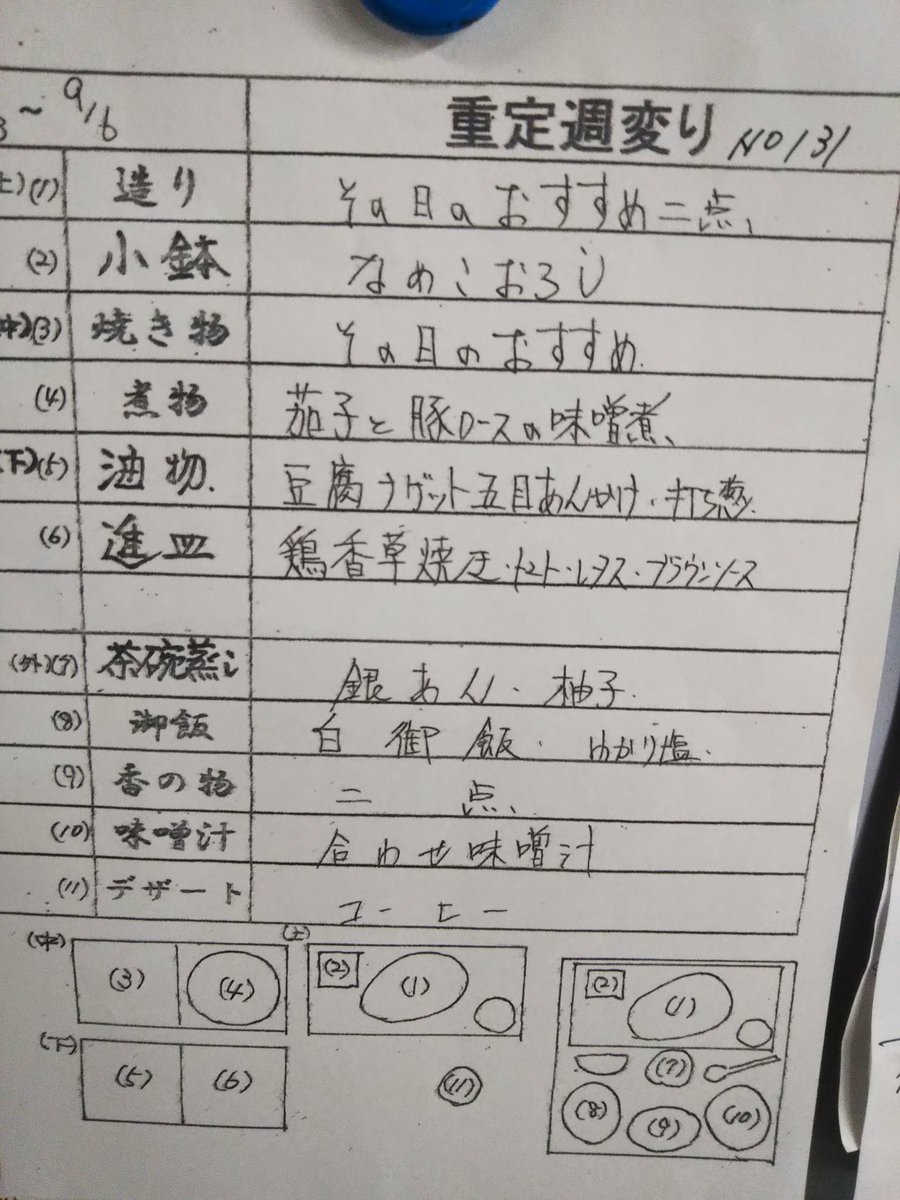 3~9/6 重定週変り NO131
土)(1) 造り その日のおすすめ二点、
(2) 小鉢 なめこおろし
中)(3) 焼き物 その日のおすすめ.
(4) 煮物 茄子と豚ロースの味噌煮、
(下)(5) 油物. 豆腐ナゲット五目あんかけ・打ち葱.
(6) 進皿 鶏香草焼き・トマト・レタス・ブラウンソース
(外)(7) 茶碗蒸し 銀あん・柚子.
(8) 御飯 白御飯・ゆかり塩.
(9) 香の物 二点、
(10) 味噌汁 合わせ味噌汁
(11) デザート コーヒー
(中) (3) (4)
(上) (2) (1)
(2) (1)
(下) (5) (6)
(11)
(7)
(8) (9) (10)